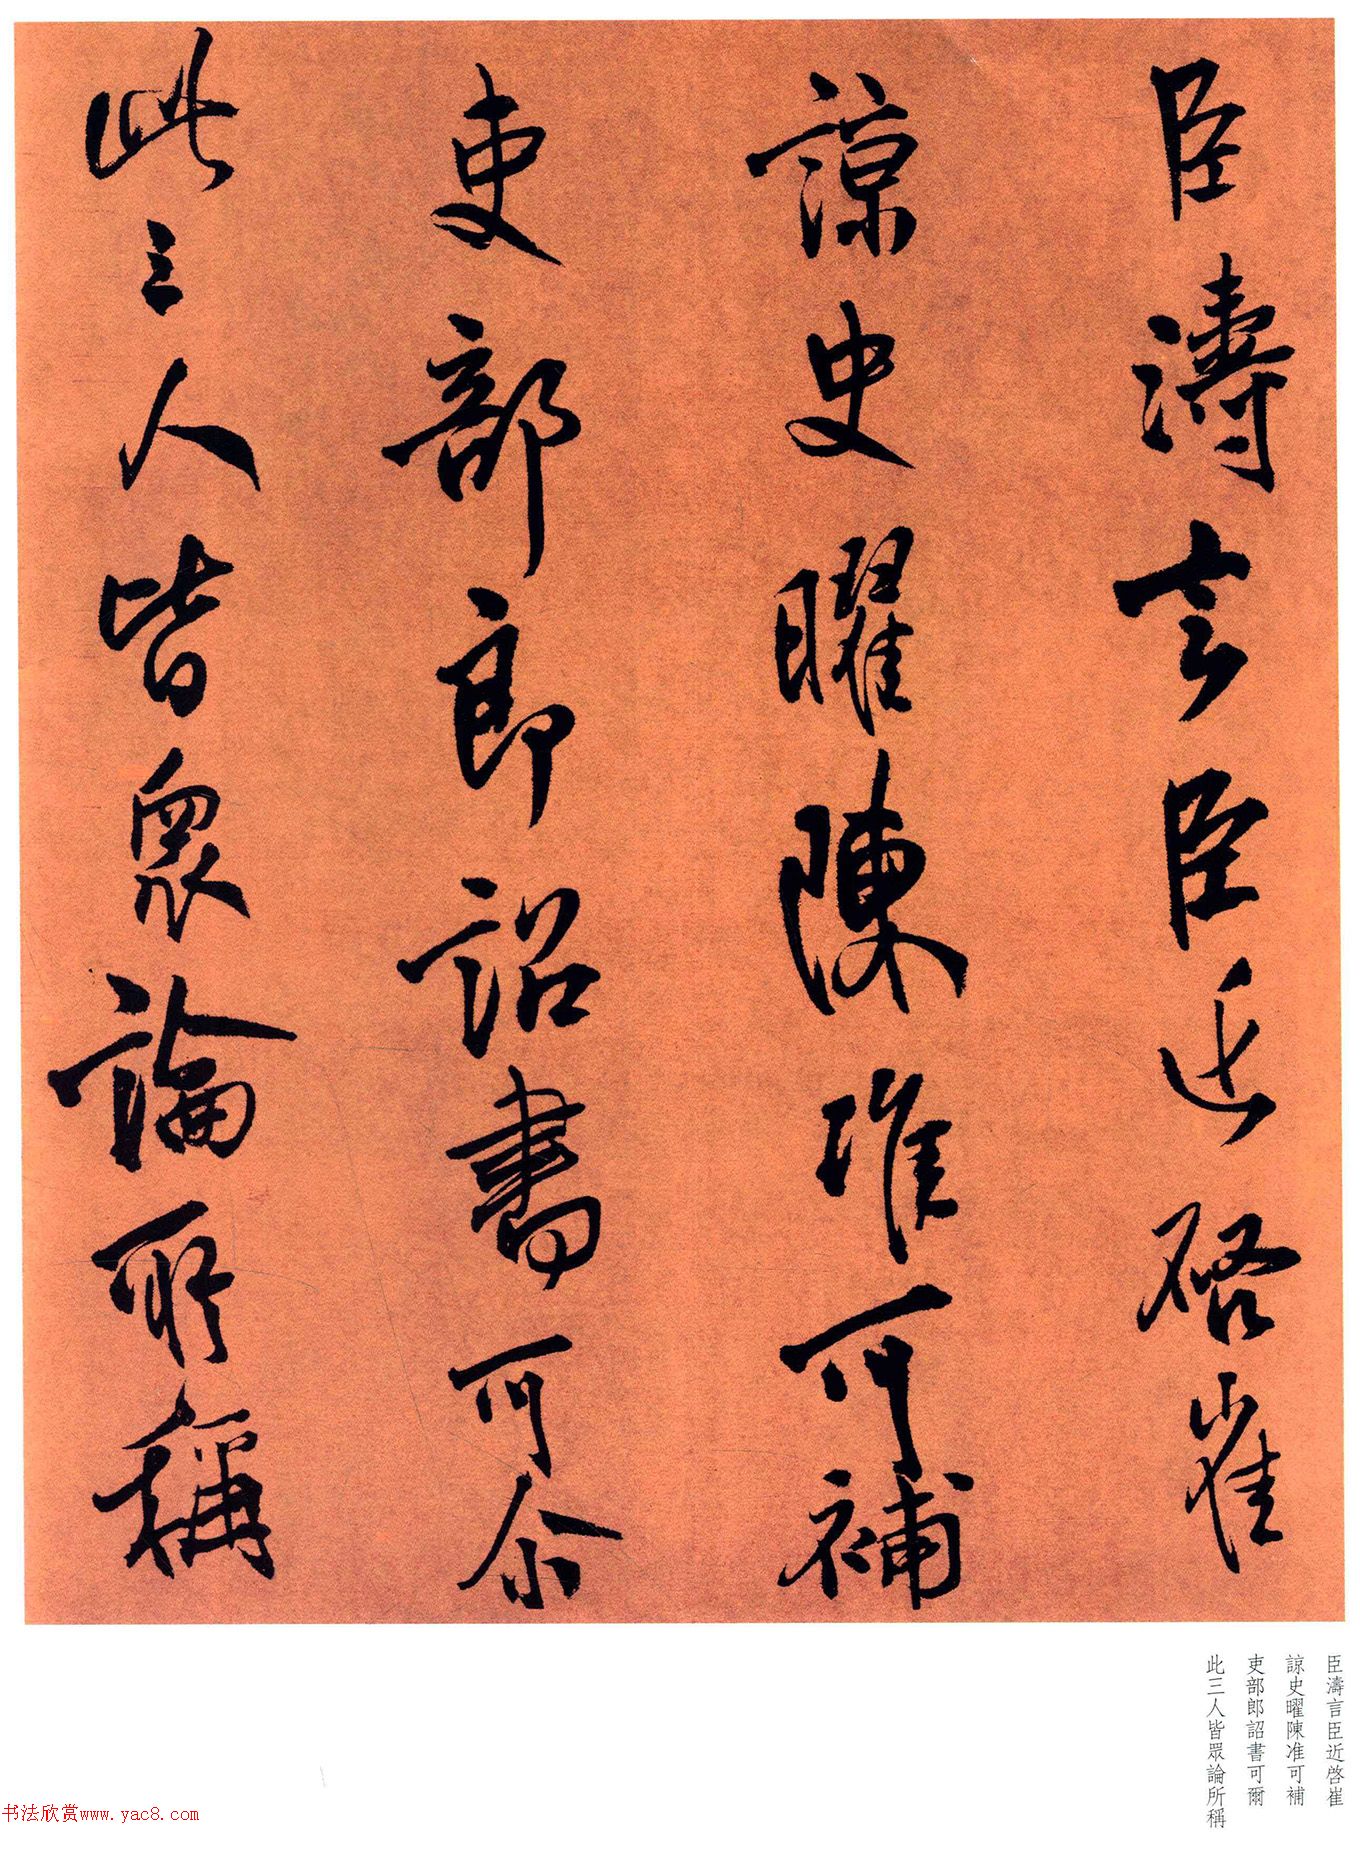 臣濤言臣近啓崔
諒史曜陳准可補
吏部郎詔書可尒
此三人皆衆論所稱
臣濤言臣近啓崔
諒史曜陳准可補
吏部郎詔書可爾
此三人皆眾論所稱
书法欣赏www.yac8.com